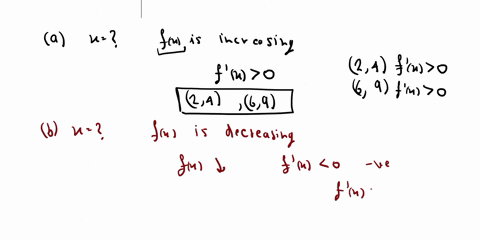 (a) x=? f(x) is increasing
f'(x)>0
(2,4) , (6,9)
(2,4) f'(x)>0
(6, 9) f'(x)>0
(b) x=? f(x) is decreasing
f(x) ↓ f'(x) <0 -ve
f'(x)